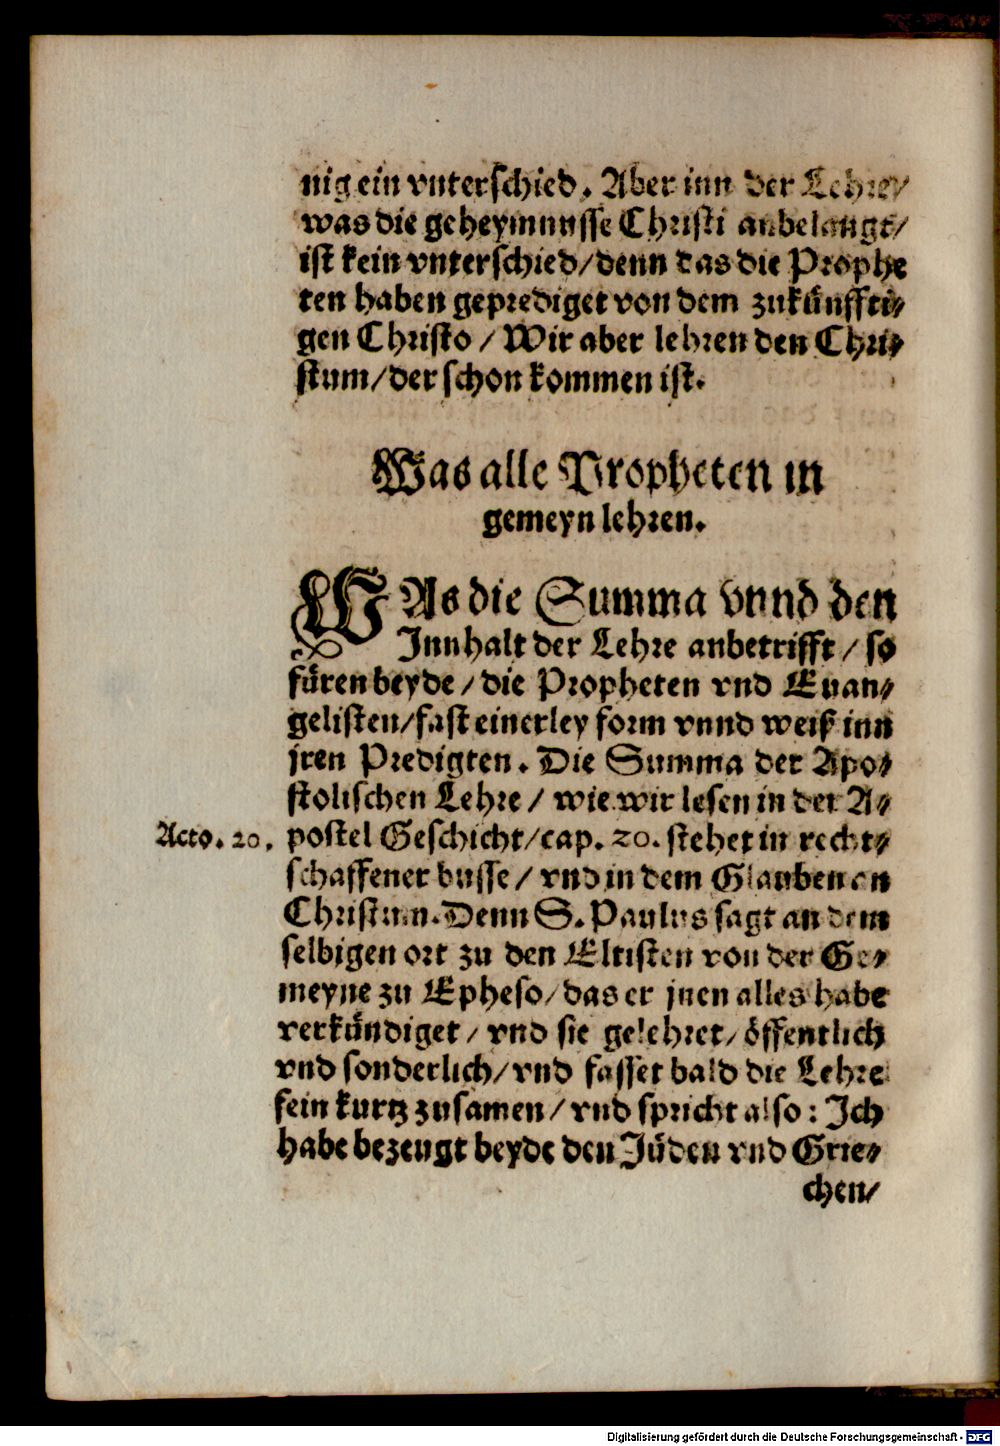 nig ein vnterschied. Aber inn der Lehre/
was die geheymnusse Christi anbelangt/
ist kein vnterschied/denn das die Prophe
ten haben geprediget von dem zukünffti⸗
gen Christo / Wir aber lehren den Chri⸗
stum/der schon kommen ist.
Was alle Propheten in
gemeyn lehren.
WAs die Summa vnnd den
Innhalt der Lehre anbetrifft / so
füren beyde / die Propheten vnd Euan⸗
gelisten/fast einerley form vnnd weiß inn
jren Predigten. Die Summa der Apo⸗
stolischen Lehre / wie wir lesen in der A⸗
Acto. 20. postel Geschicht/cap. 20. stehet in recht⸗
schaffener busse / vnd in dem Glauben an
Christum. Denn S. Paulus sagt an dem
selbigen ort zu den Eltisten von der Ge⸗
meyne zu Epheso/das er jnen alles habe
verkündiget / vnd sie gelehret/ öffentlich
vnd sonderlich/vnd fasset bald die Lehre
fein kurtz zusamen / vnd spricht also: Ich
habe bezeugt beyde den Jüden vnd Grie⸗
chen/
Digitalisierung gefördert durch die Deutsche Forschungsgemeinschaft - DFG